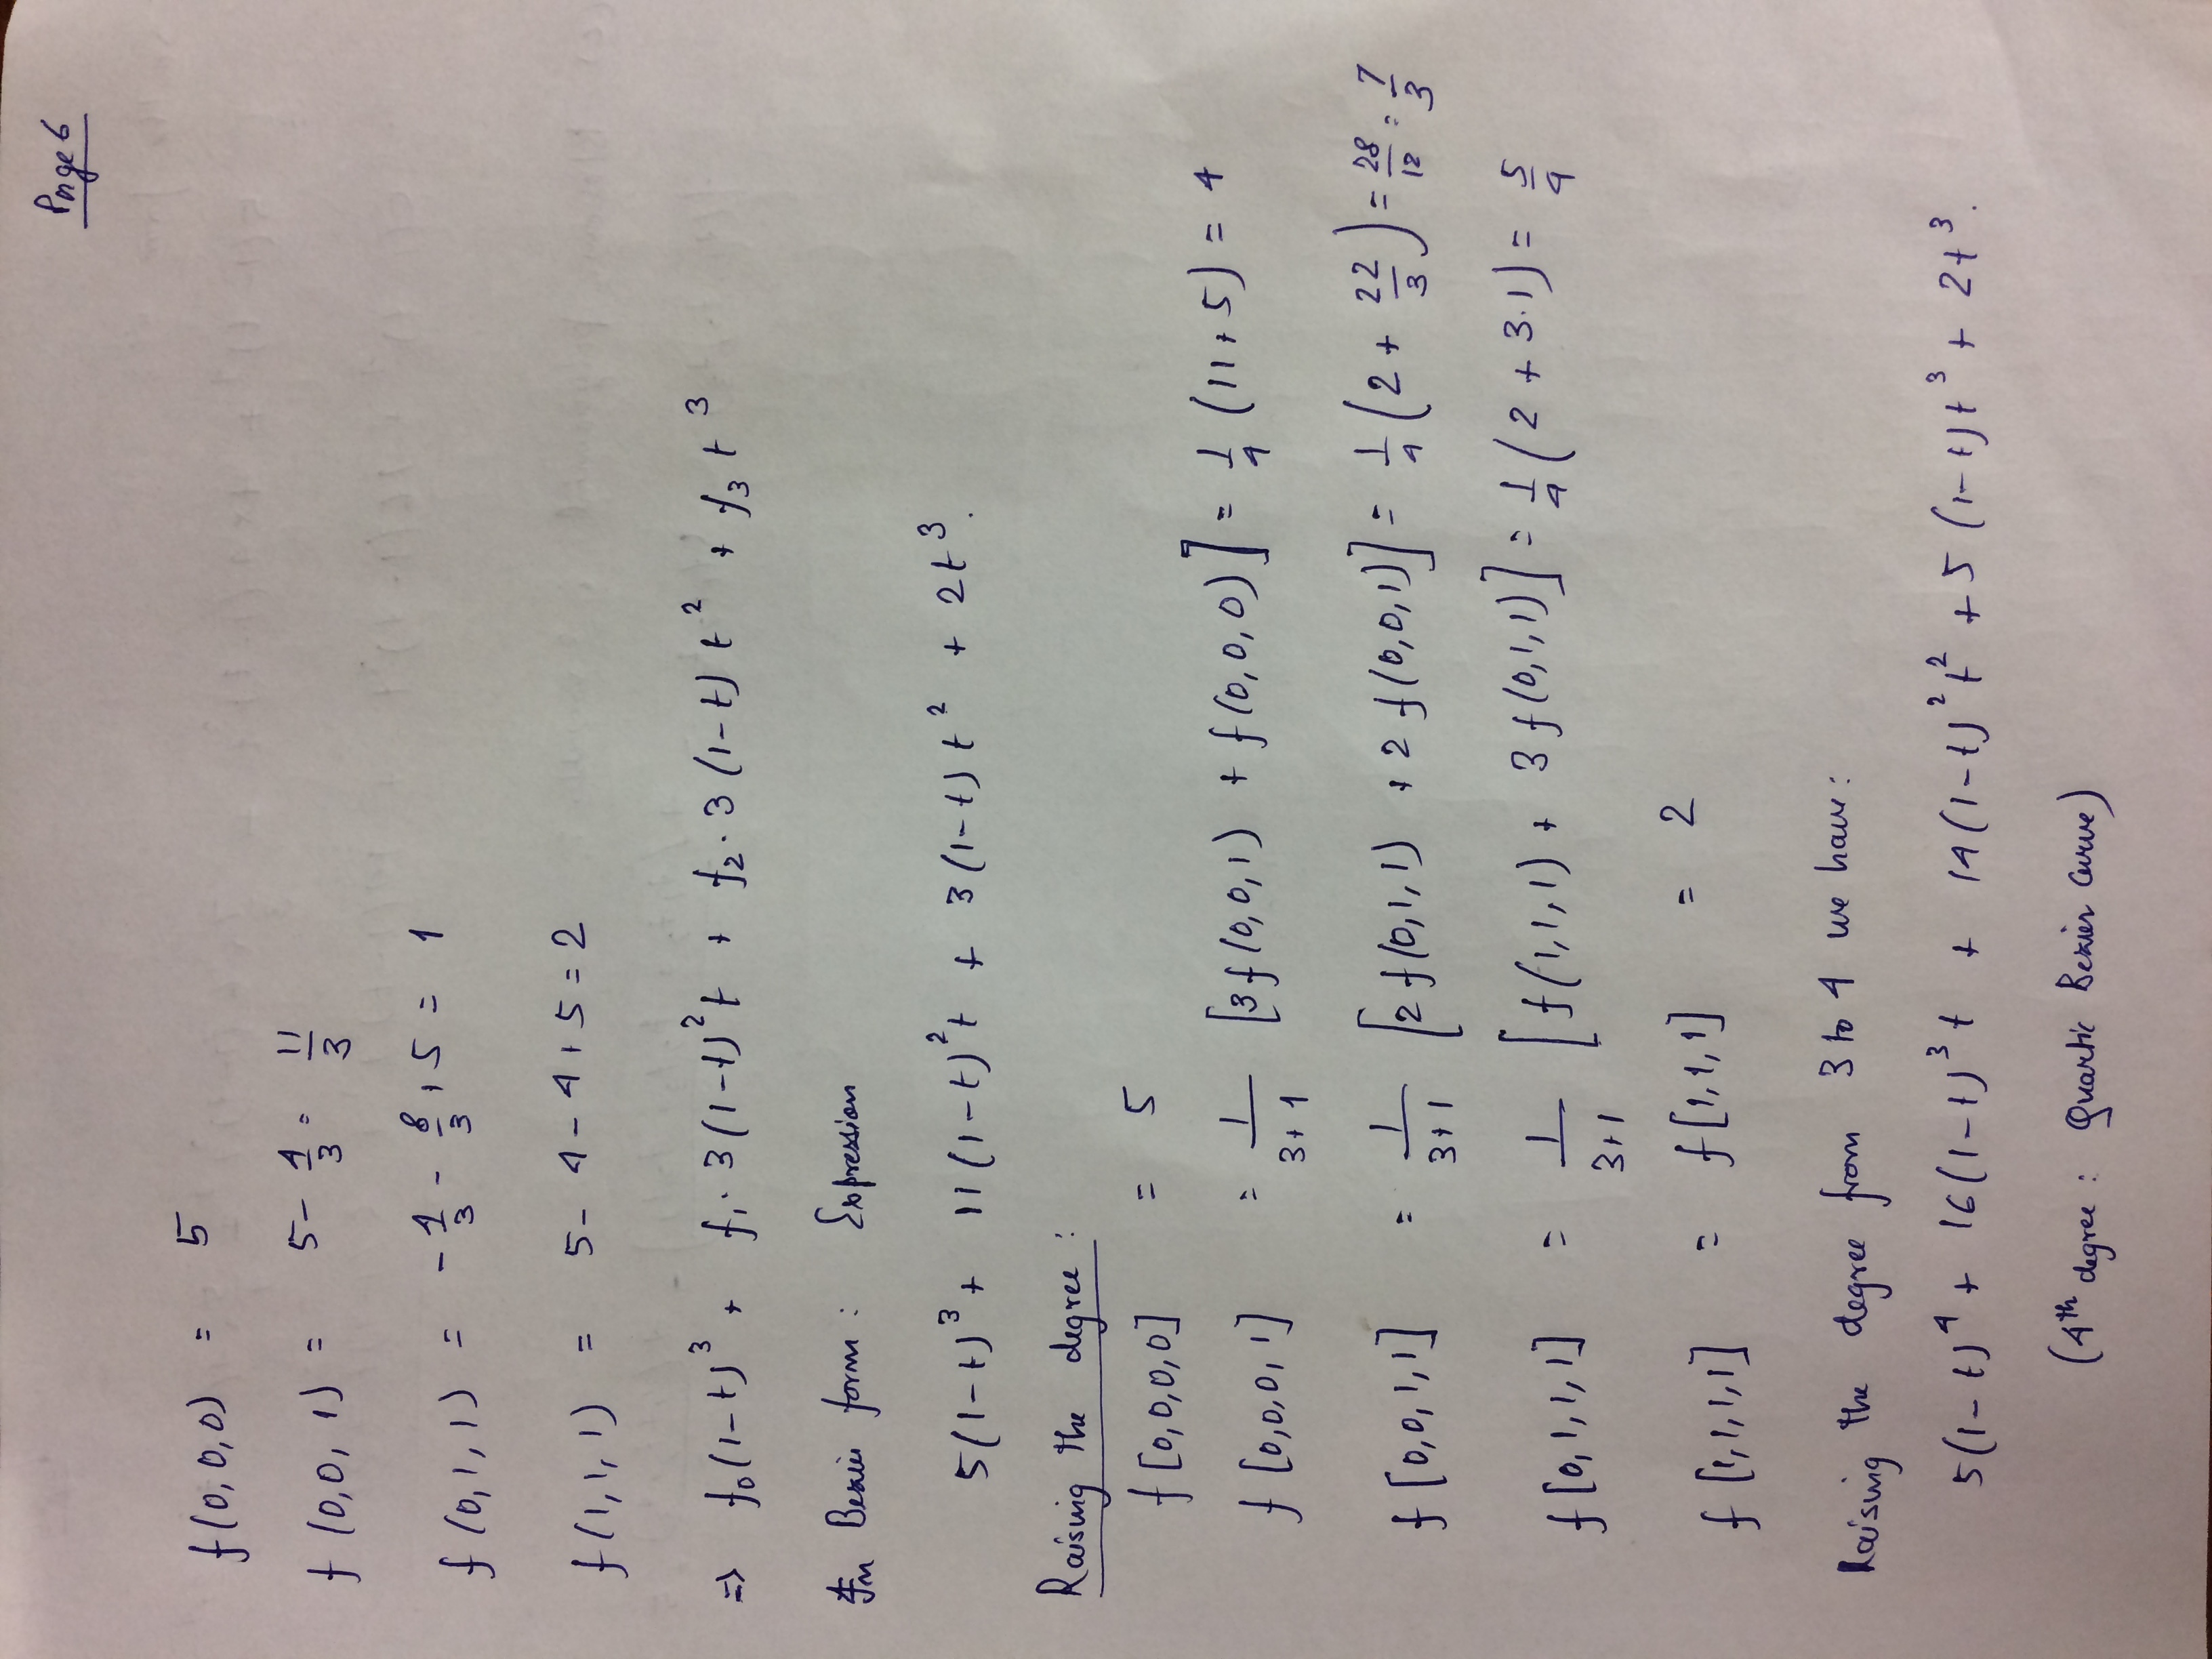 Page 6
f(0,0,0) = 5
f(0,0,1) = 5 - 4/3 = 11/3
f(0,1,1) = -4/3 - 8/3 + 5 = 1
f(1,1,1) = 5 - 4 - 4 + 5 = 2
=> f₀(1-t)³ + f₁·3(1-t)²t + f₂·3(1-t)t² + f₃t³
In Bezier form: Expression
5(1-t)³ + 11(1-t)²t + 3(1-t)t² + 2t³.
Raising the degree:
f[0,0,0,0] = 5
f[0,0,0,1] = 1/(3+1) [3f(0,0,1) + f(0,0,0)] = 1/4 (11+5) = 4
f[0,0,1,1] = 1/(3+1) [2f(0,1,1) + 2f(0,0,1)] = 1/4 (2 + 22/3) = 28/12 = 7/3
f[0,1,1,1] = 1/(3+1) [f(1,1,1) + 3f(0,1,1)] = 1/4 (2 + 3.1) = 5/4
f[1,1,1,1] = f[1,1,1] = 2
Raising the degree from 3 to 4 we have:
5(1-t)⁴ + 16(1-t)³t + 14(1-t)²t² + 5(1-t)t³ + 2t³.
(4th degree: Quartic Bezier Curve)